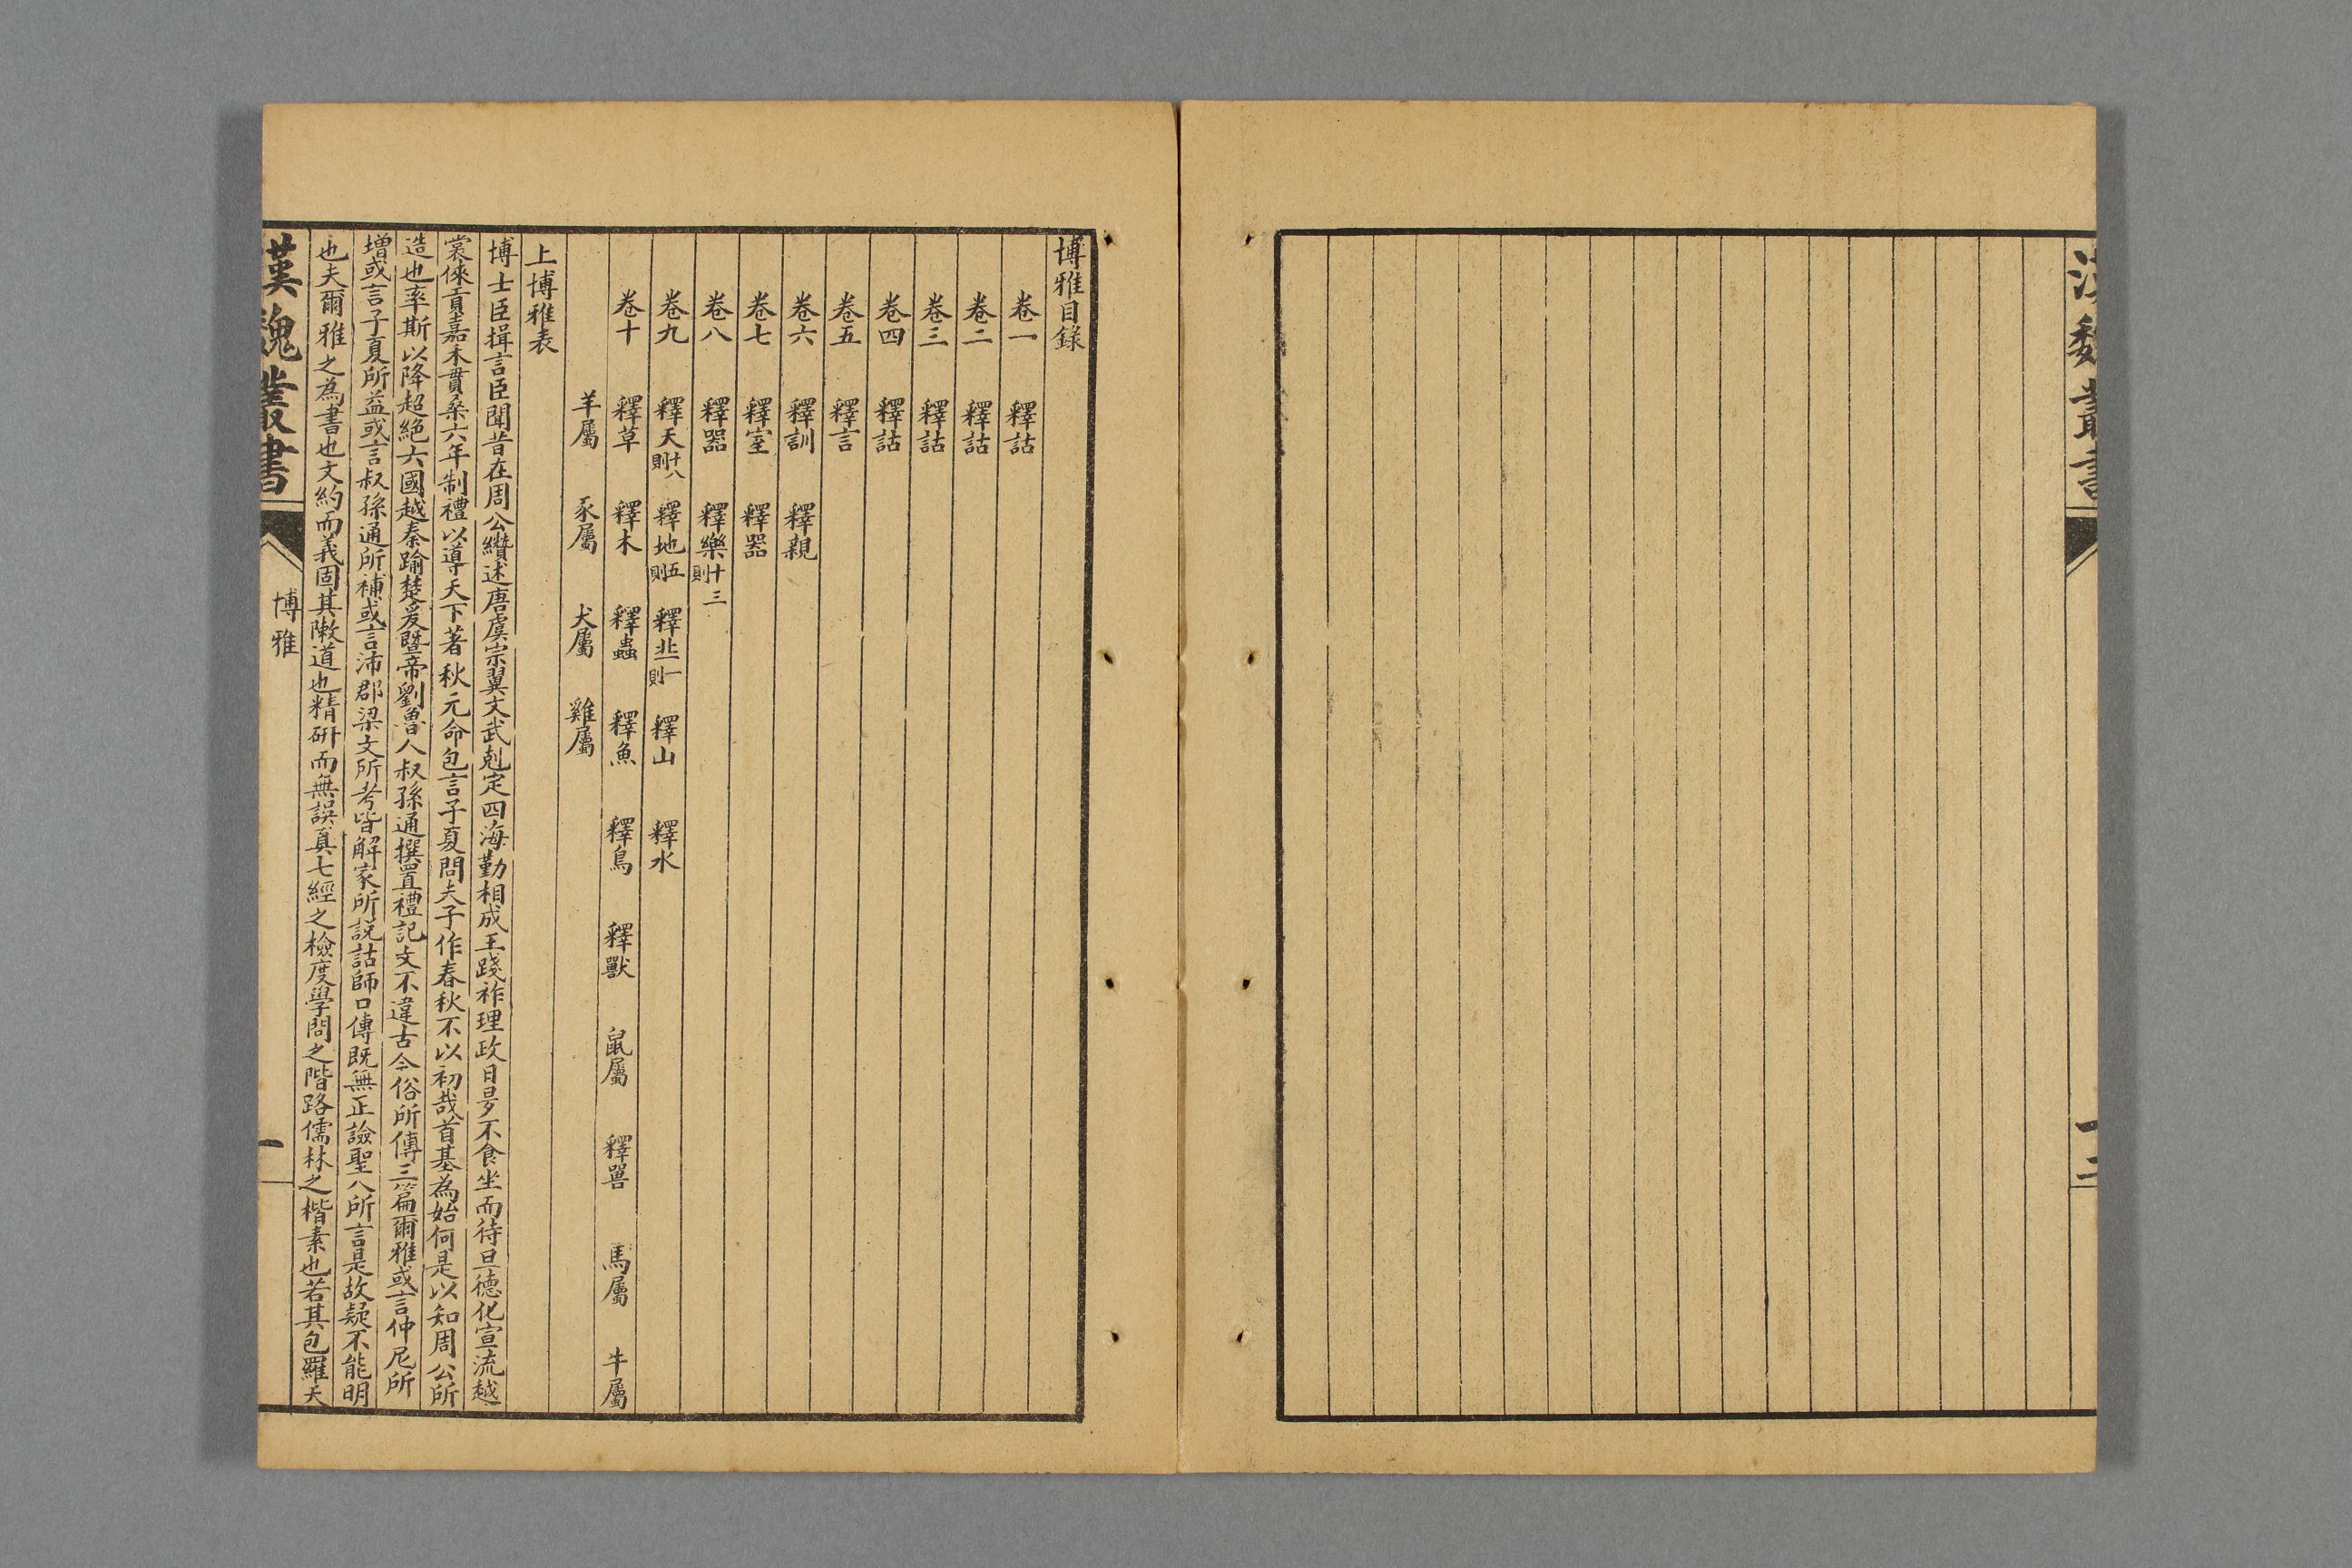 漢魏叢書
十二
博雅目錄
卷一 釋詁
卷二 釋詁
卷三 釋詁
卷四 釋詁
卷五 釋言
卷六 釋訓 釋親
卷七 釋室 釋器
卷八 釋器 釋樂十三則
卷九 釋天十八則 釋地五則 釋丠一則 釋山 釋水
卷十 釋草 釋木 釋蟲 釋魚 釋鳥 釋獸 鼠屬 釋嘼 馬屬 牛屬
羊屬 豕屬 犬屬 雞屬
上博雅表
博士臣揖言臣聞昔在周公纘述唐虞宗翼文武剋定四海勤相成王踐祚理政日昃不食坐而待旦德化宣流越
裳倈貢嘉禾貫桑六年制禮以導天下著秋元命包言子夏問夫子作春秋不以初哉首基為始何是以知周公所
造也率斯以降超絕六國越秦踰楚爰曁帝劉魯人叔孫通撰置禮記文不違古今俗所傳三篇爾雅或言仲尼所
增或言子夏所益或言叔孫通所補或言沛郡梁文所考皆解家所說詁師口傳既無正譣聖人所言是故疑不能明
也夫爾雅之為書也文約而義固其敶道也精硏而無誤真七經之檢度學問之階路儒林之楷素也若其包羅天
漢魏叢書 博雅 一